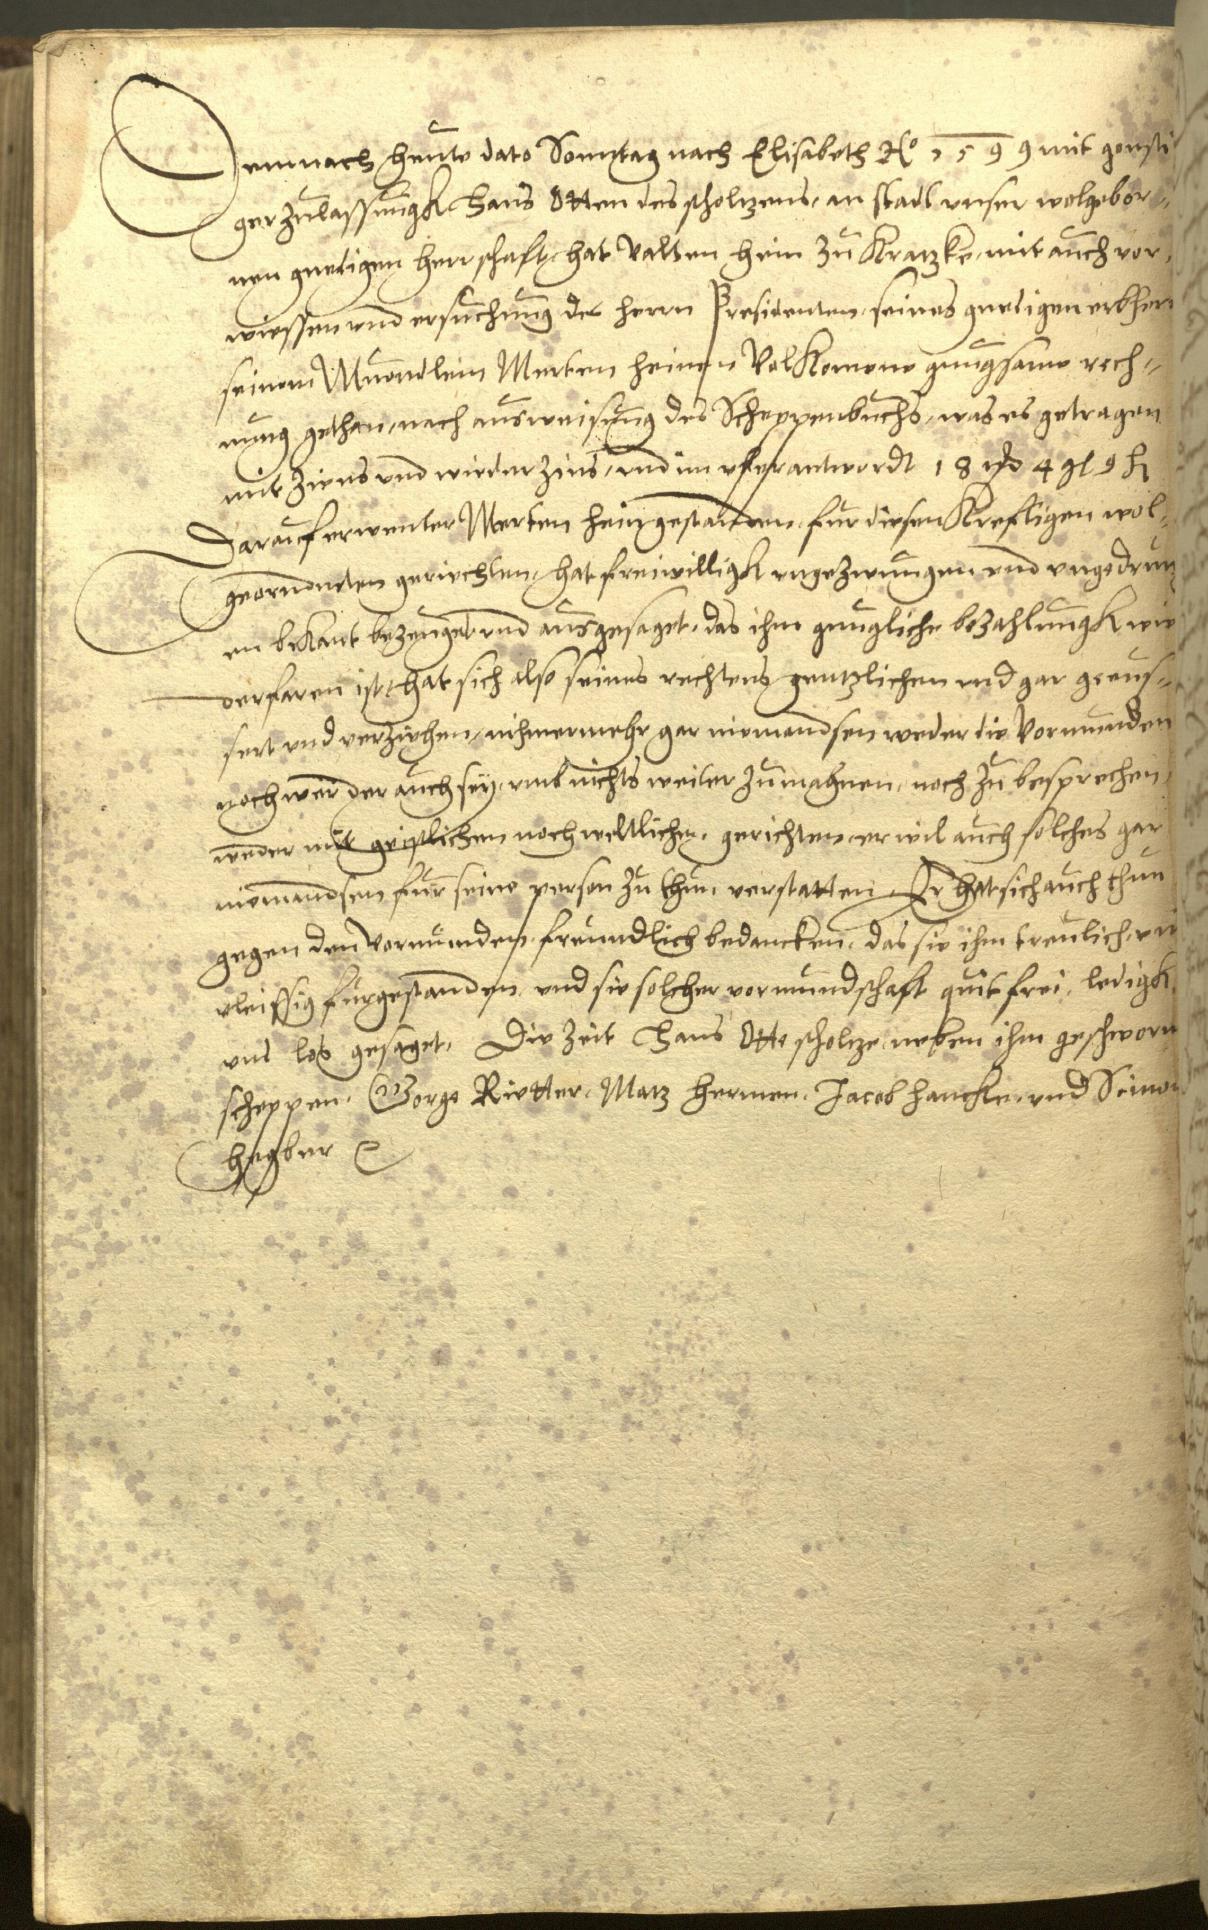 Demnach heute dato Sonntag nach Elisabeth Ao 1599 mit gonsti
ger zulassungk Hans Otten des scholtzens, an stadt vnser wolgebor-
nen gnedigen herrschaft, hat Valten hein zu Kratzke, mit auch vor-
wiessen vnd ersuchung des herrn Presidenten, seines gnedigen erbhern
seinem Muondlein Merten heinen Volkomene gnugsame rech-
nung gethan, nach ausweisung des Scheppenbuchs, was es getragen
mit Ziens vnd wieder Zins, vnd im vberantwordt 18 4 gl 9 h
Darauf erwenter Merten hein gestanden, fur diesen Kreftigen wol-
geornndten gerichten, hat freiwilligk vngezwungen vnd vngedrun
en bekant bezeuget vnd ausgesaget, das ihm gnugliche bezahlungk wie
derfaren ist, hat sich also seines rechtens gentzlichen vnd gar geeus-
sert vnd verziehen, nihmermehr gar niemandsen weder die Vormunden
noch wer der auch sey, vmb nichts weiter zumahnen, noch zu besprechen,
weder mit geistlichen noch weltlichen, gerichten, er wil auch solches gar
niemandsen fur seine person zu thun, verstatten, Er hat sich auch thun
gegen den Vormunden, freundlich bedancken, das sie ihm treulich, vn
vleissig furgestanden, vnd sie solcher vormundschaft quit frei, ledigk,
vnd los gesaget, Die Zeit Hans Otte scholtze neben ihm geschworn
scheppen, George Rietter, Matz Hermen, Jacob Hancke, vnd Simon